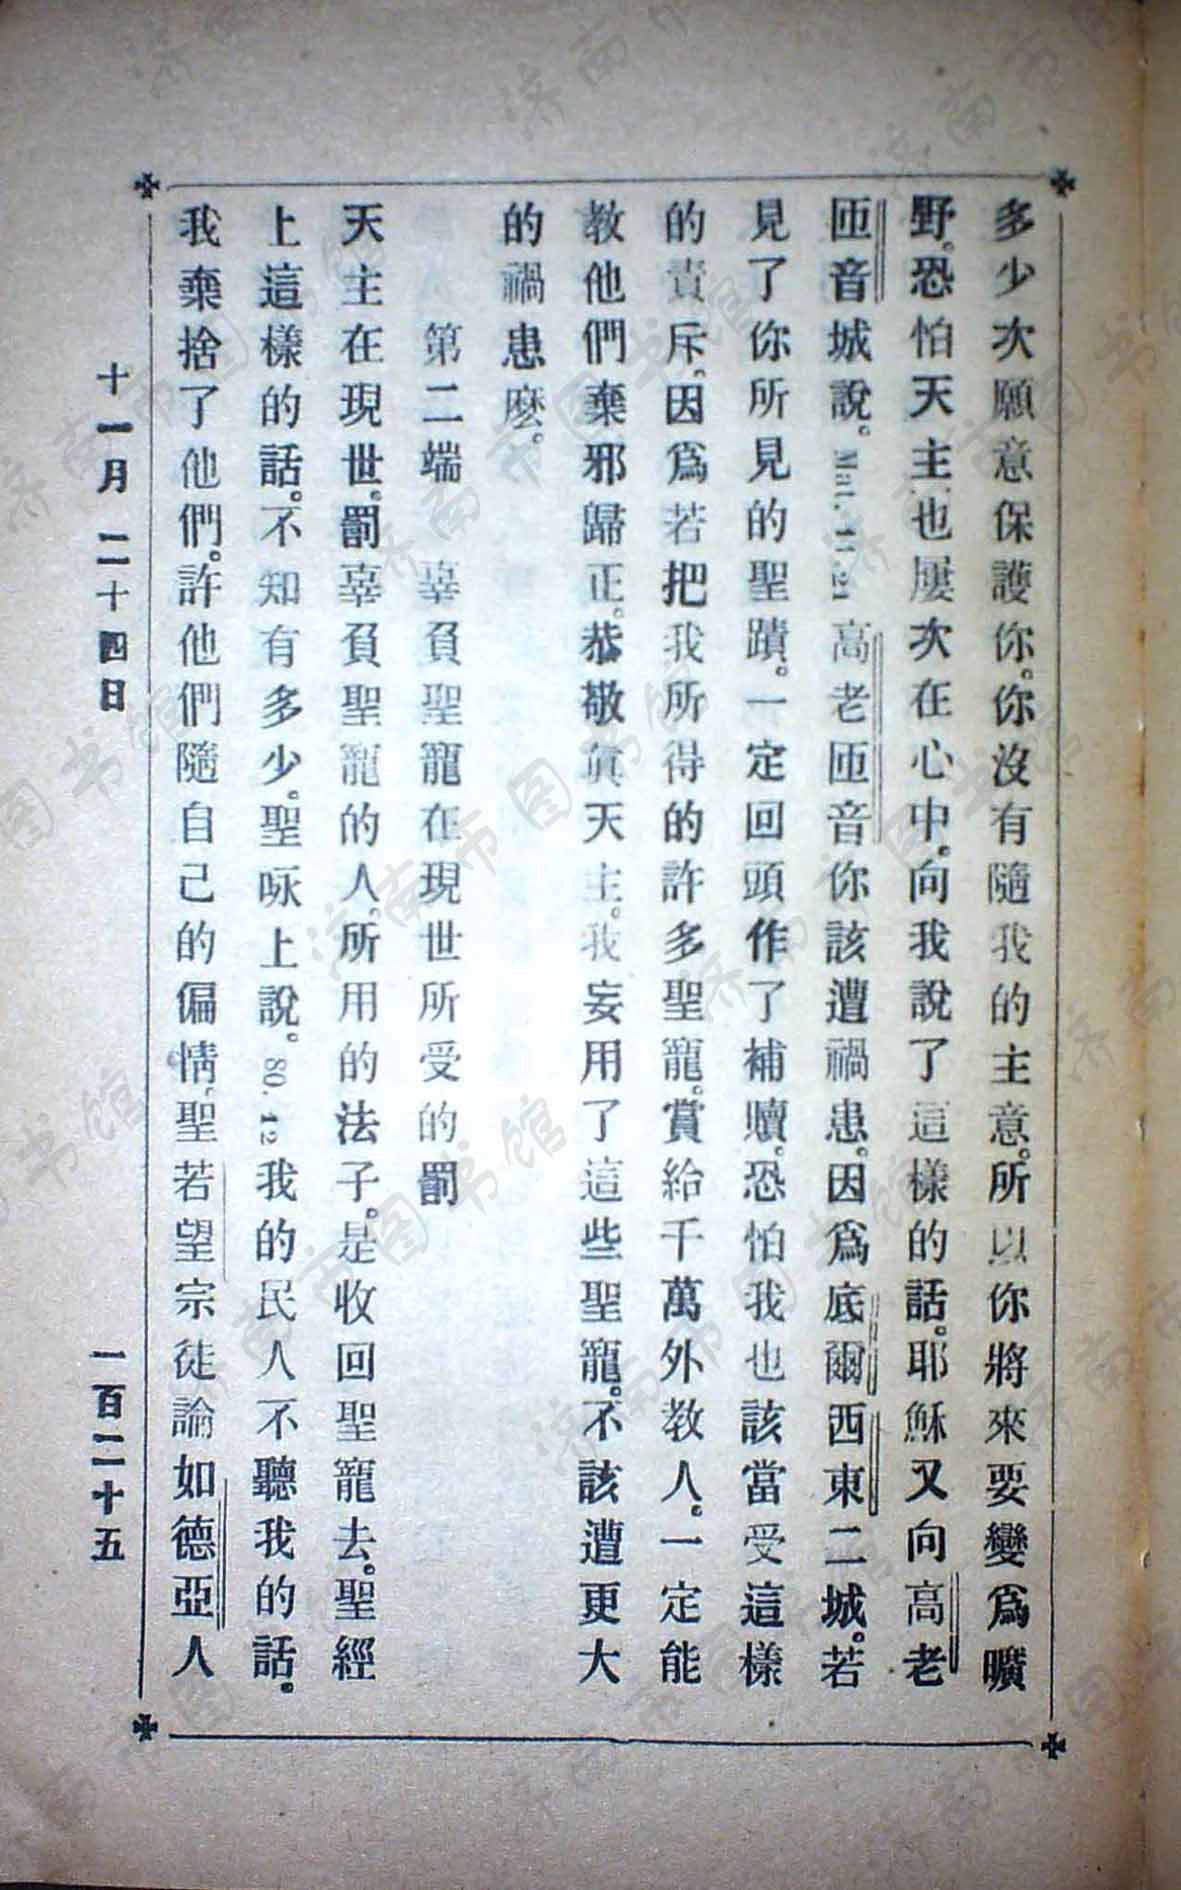 多少次願意保護你。你沒有隨我的主意。所以你將來要變爲曠
野。恐怕天主也屢次在心中。向我說了這樣的話。耶穌又向高老
匝音城說。Mat. 11.21高老匝音你該遭禍患。因爲底爾西東二城。若
見了你所見的聖蹟。一定回頭作了補贖。恐怕我也該當受這樣
的責斥。因爲若把我所得的許多聖寵。賞給千萬外教人。一定能
教他們棄邪歸正。恭敬眞天主。我妄用了這些聖寵。不該遭更大
的禍患麽。
第二端 辜負聖寵在現世所受的罰
天主在現世。罰辜負聖寵的人。所用的法子。是收回聖寵去。聖經
上這樣的話。不知有多少。聖咏上說。80. 12我的民人不聽我的話。
我棄捨了他們。許他們隨自己的偏情。聖若望宗徒論如德亞人
十一月 二十四日 一百二十五
济南市图书馆